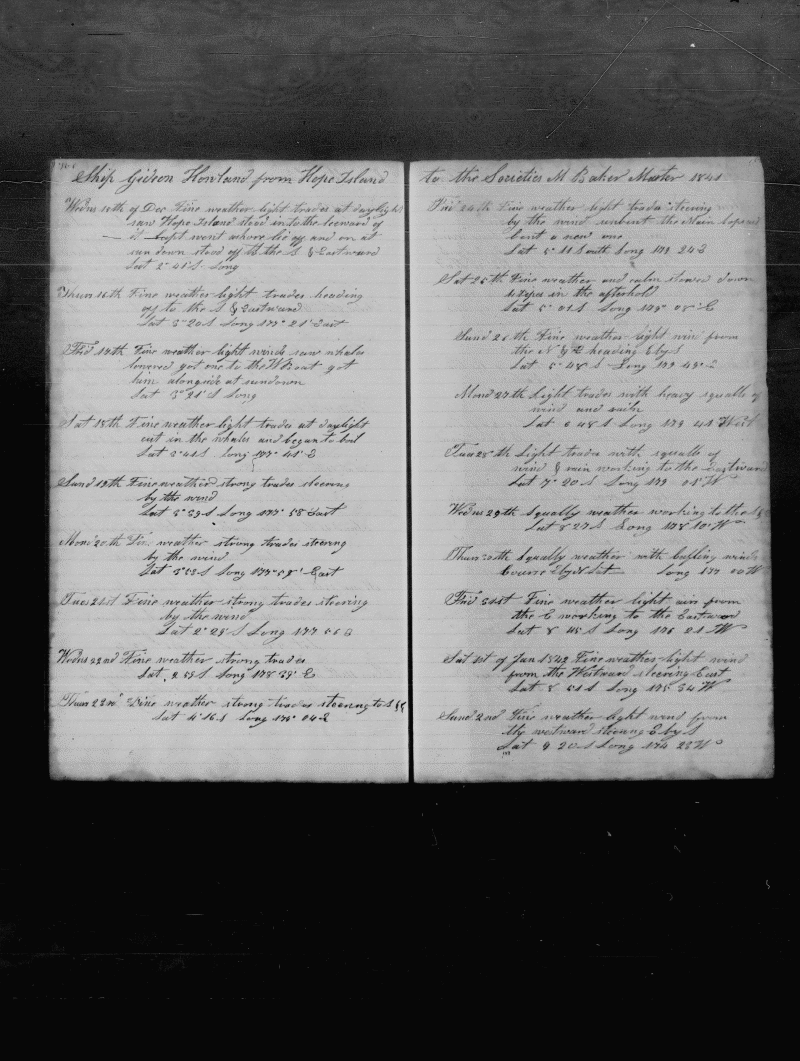 Ship Gideon Howland from Hope Island
Wedns 15th of Dec Fine weather light trades at daylight
saw Hope Island stood in to the leeward of
it boat went ashore lie off and on at
sundown stood off to the S & Eastward
Lat 2° 41 S Long
Thurs 16th Fine weather light trades heading
off to the S & Eastward
Lat 3° 20 S Long 177° 21' East
Frid 17th Fine weather light winds saw whales
lowered got one to the W boat got
him alongside at sundown
Lat 3° 21' S Long
Sat 18th Fine weather light trades at daylight
cut in the whales and began to boil
Lat 3° 41 S Long 177° 41' E
Sund 19th Fine weather strong trades steering
by the wind
Lat 3° 39 S Long 177° 58' East
Mond 20th Fine weather strong trades steering
by the wind
Lat 3° 53 S Long 177° 58' East
Tues 21st Fine weather strong trades steering
by the wind
Lat 2° 28 S Long 177 56 E
Wedns 22nd Fine weather strong trades
Lat 2 59 S Long 178 39' E
Thurs 23rd Fine weather strong trades steering to S
Lat 4° 16 S Long 179° 04 E
to the Societies M Baker Master 1841
Frid 24th Fine weather light trades steering
by the wind unbent the Main topsail
bent a new one
Lat 5° 11 South Long 179 24 E
Sat 25th Fine weather and calm stowed down
pipes in the afterhold
Lat 5° 01 S Long 179° 08' E
Sund 26th Fine weather light wind from
the N & E heading E by S
Lat 5° 48 S Long 179 49° E
Mond 27th Light trades with heavy squalls of
wind and rain
Lat 6 48 S Long 179 41 West
Tues 28th Light trades with squalls of
wind & rain working to the Eastward
Lat 7° 20 S Long 179 01' W
Wedns 29th Squally weather working to the
Lat 8 27 S Long 178 10' W
Thurs 30th Squally weather with baffling winds
Course E by N Lat Long 177 00 W
Frid 31st Fine weather light airs from
the E working to the Eastward
Lat 8 45 S Long 176 21 W
Sat 1st of Jan 1842 Fine weather light wind
from the Westward steering East
Lat 8 51 S Long 175 34 W
Sund 2nd Fine weather light wind from
the westward steering E by S
Lat 9 20 S Long 174 23 W